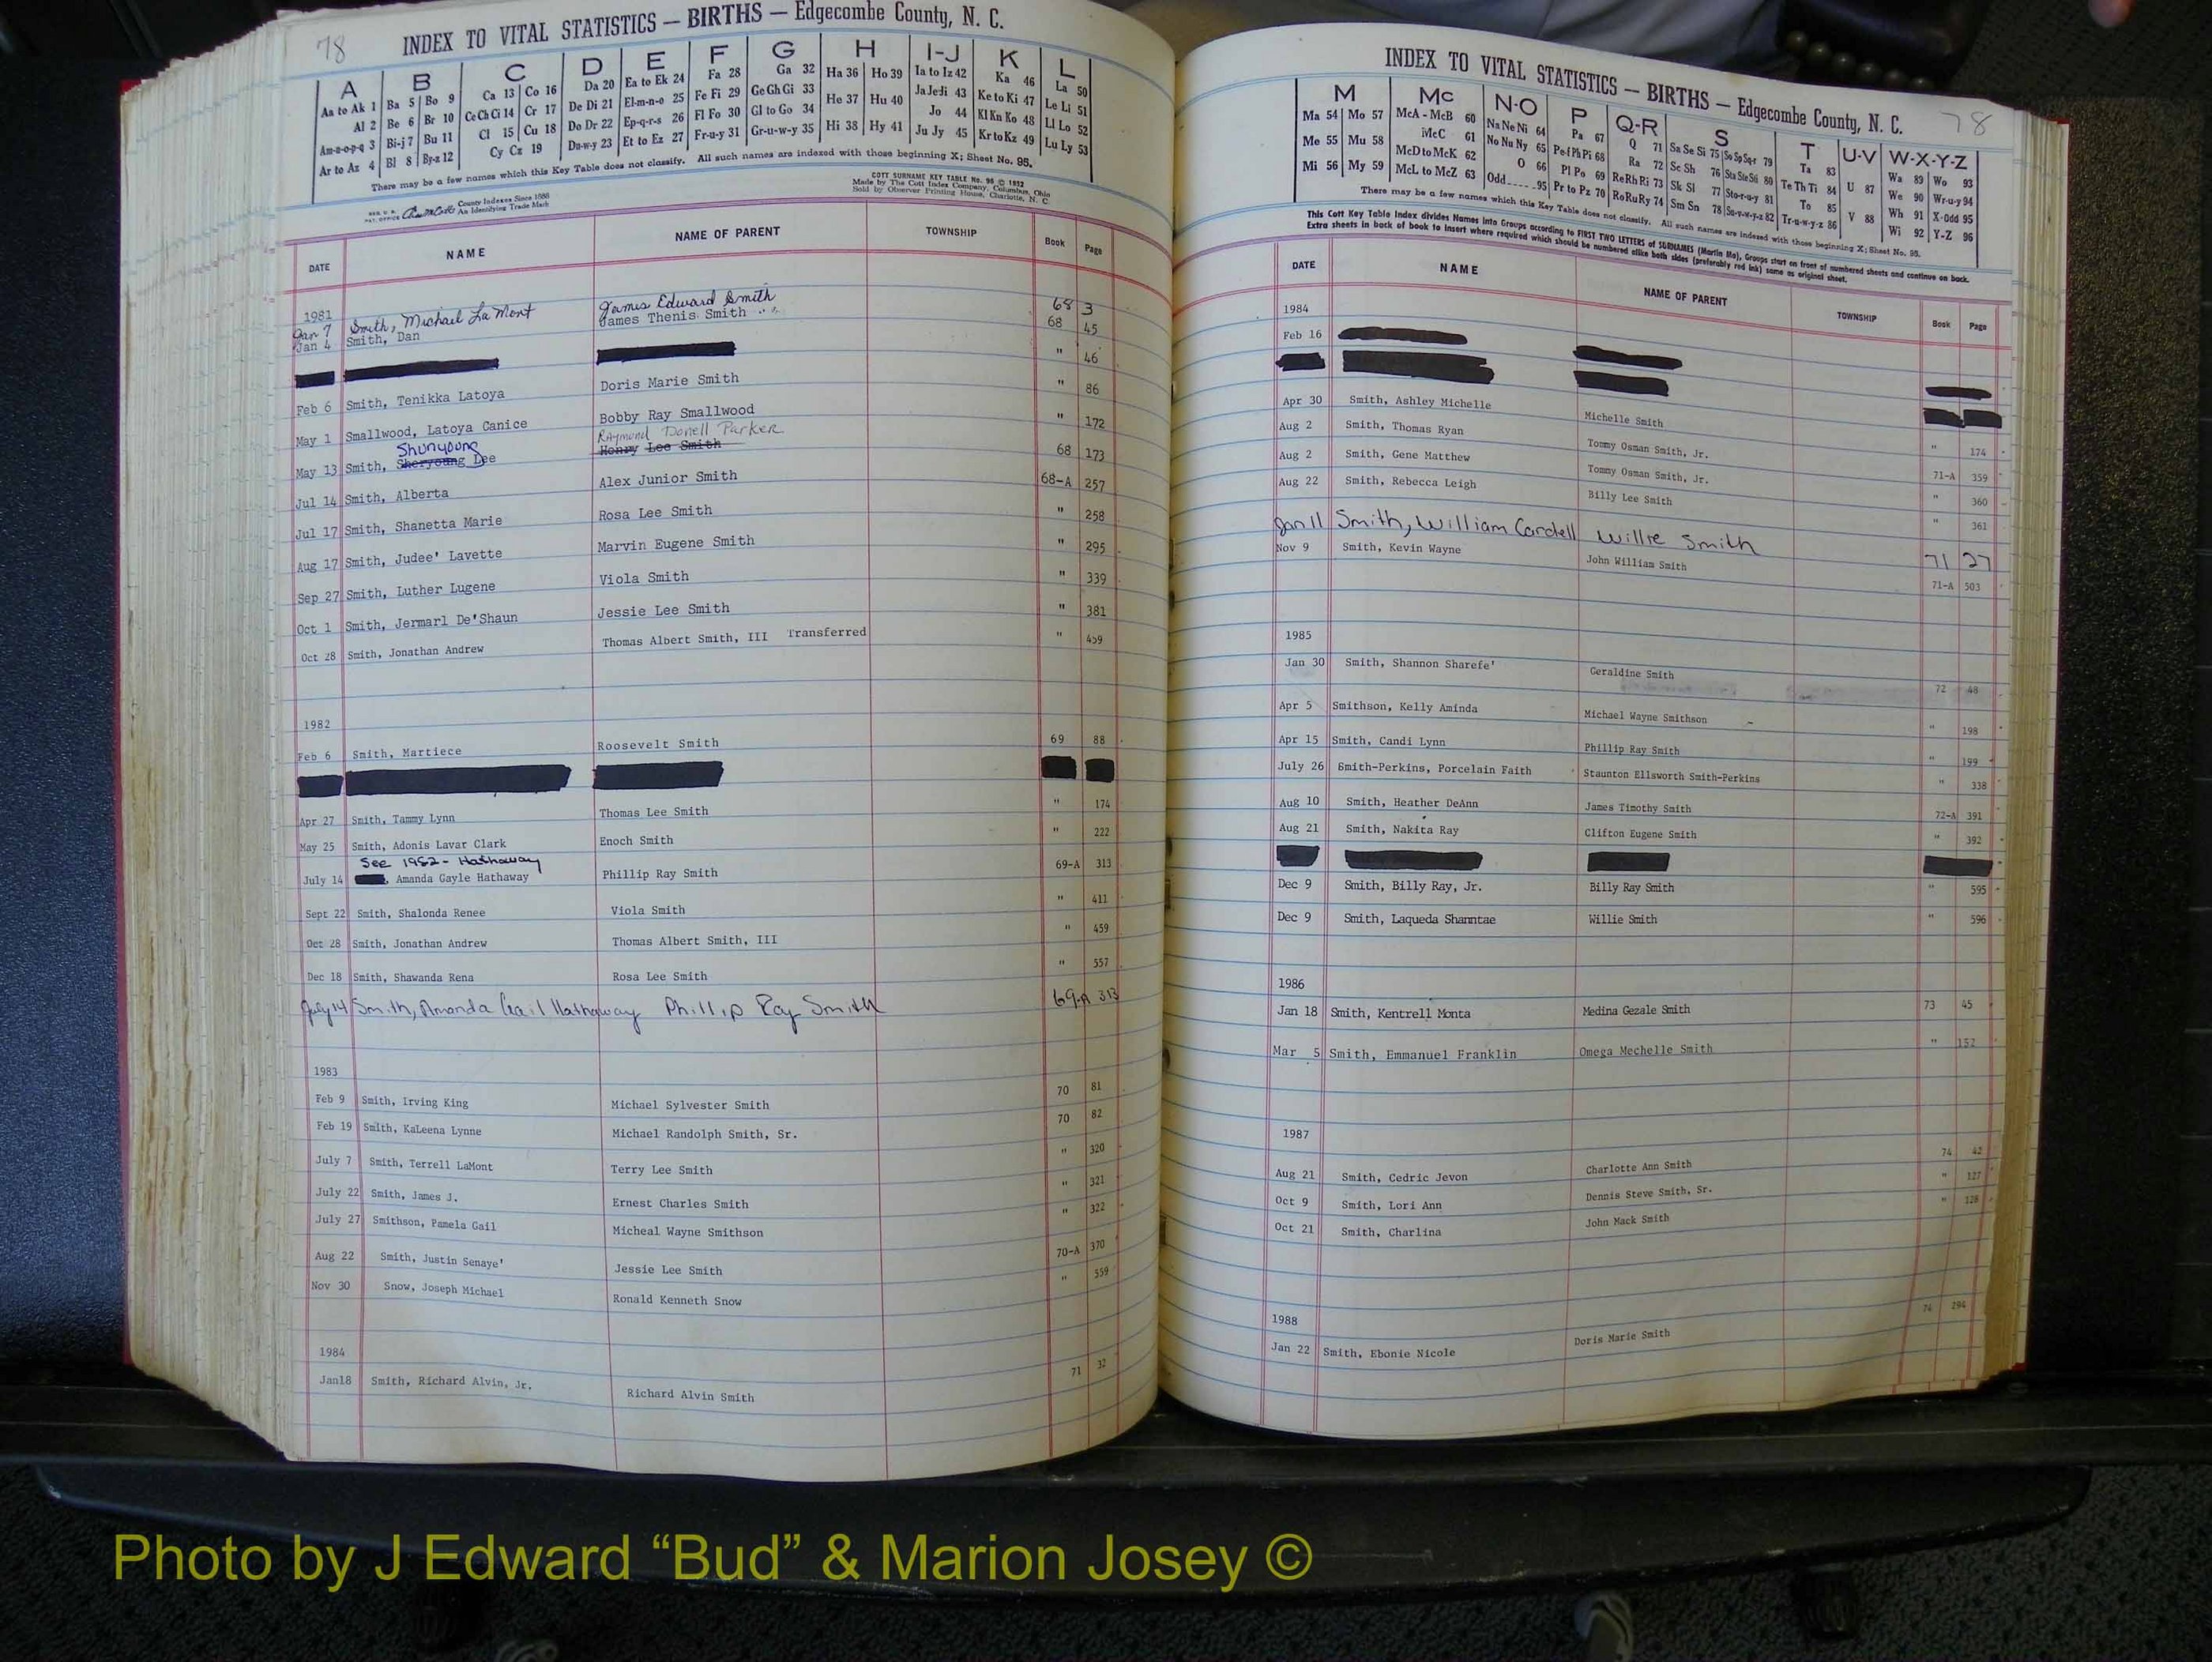 78
INDEX TO VITAL STATISTICS — BIRTHS — Edgecombe County, N. C.
A B C D E F G H I-J K L
Aa to Ak 1 Ba 5 Bo 9 Ca 13 Co 16 Da 20 Ea to Ek 24 Fa 28 Ga 32 Ha 36 Ho 39 Ia to Iz 42 Ka 46 La 50
Al 2 Be 6 Br 10 Ce Ch Ci 14 Cr 17 De Di 21 El-m-n-o 25 Fe Fi 29 Ge Gh Gi 33 He 37 Hu 40 Ja Je Ji 43 Ke to Ki 47 Le Li 51
Am-n-o-p-q 3 Bi-j 7 Bu 11 Cl 15 Cu 18 Do Dr 22 Ep-q-r-s 26 Fl Fo 30 Gl to Go 34 Hi 38 Hy 41 Jo 44 Kl Kn Ko 48 Ll Lo 52
Ar to Az 4 Bl 8 By-z 12 Cy Cz 19 Du-w-y 23 Et to Ez 27 Fr-u-y 31 Gr-u-w-y 35 Ju Jy 45 Kr to Kz 49 Lu Ly 53
There may be a few names which this Key Table does not classify. All such names are indexed with those beginning X; Sheet No. 95.
County Indexes Since 1888
An Identifying Trade Mark
COTT SURNAME KEY TABLE No. 96 © 1952
Made by The Cott Index Company, Columbus, Ohio
Sold by Observer Printing House, Charlotte, N. C.
DATE NAME NAME OF PARENT TOWNSHIP Book Page
1981
Jan 7 Smith, Michael LaMont James Edward Smith 68 3
Jan 4 Smith, Dan James Thenis Smith 68 45
" 46
Feb 6 Smith, Tenikka Latoya Doris Marie Smith " 86
May 1 Smallwood, Latoya Canice Bobby Ray Smallwood " 172
Shunyoung Raymond Donell Parker
May 13 Smith, Sheryoung Lee Henry Lee Smith 68 173
Jul 14 Smith, Alberta Alex Junior Smith 68-A 257
Jul 17 Smith, Shanetta Marie Rosa Lee Smith " 258
Aug 17 Smith, Judee' Lavette Marvin Eugene Smith " 295
Sep 27 Smith, Luther Lugene Viola Smith " 339
Oct 1 Smith, Jermarl De'Shaun Jessie Lee Smith " 381
Oct 28 Smith, Jonathan Andrew Thomas Albert Smith, III Transferred " 459
1982
Feb 6 Smith, Martiece Roosevelt Smith 69 88
Apr 27 Smith, Tammy Lynn Thomas Lee Smith " 174
May 25 Smith, Adonis Lavar Clark Enoch Smith " 222
See 1982- Hathaway
July 14 , Amanda Gayle Hathaway Phillip Ray Smith 69-A 313
Sept 22 Smith, Shalonda Renee Viola Smith " 411
Oct 28 Smith, Jonathan Andrew Thomas Albert Smith, III " 459
Dec 18 Smith, Shawanda Rena Rosa Lee Smith " 557
July 14 Smith, Amanda Gail Hathaway Phillip Ray Smith 69-A 313
1983
Feb 9 Smith, Irving King Michael Sylvester Smith 70 81
Feb 19 Smith, KaLeena Lynne Michael Randolph Smith, Sr. 70 82
July 7 Smith, Terrell LaMont Terry Lee Smith " 320
July 22 Smith, James J. Ernest Charles Smith " 321
July 27 Smithson, Pamela Gail Micheal Wayne Smithson " 322
Aug 22 Smith, Justin Senaye' Jessie Lee Smith 70-A 370
Nov 30 Snow, Joseph Michael Ronald Kenneth Snow " 559
1984
Jan18 Smith, Richard Alvin, Jr. Richard Alvin Smith 71 32
INDEX TO VITAL STATISTICS — BIRTHS — Edgecombe County, N. C. 78
M Mc N-O P Q-R S T U-V W-X-Y-Z
Ma 54 Mo 57 McA - McB 60 Na Ne Ni 64 Pa 67 Q 71 Sa Se Si 75 So Sp Sq-r 79 Ta 83 U 87 Wa 89 Wo 93
Me 55 Mu 58 McC 61 No Nu Ny 65 Pe-f Ph Pi 68 Ra 72 Sc Sh 76 Sta Ste Sti 80 Te Th Ti 84 V 88 We 90 Wr-u-y 94
Mi 56 My 59 McD to McK 62 O 66 Pl Po 69 Re Rh Ri 73 Sk Sl 77 Sto-r-u-y 81 To 85 Wh 91 X-Odd 95
McL to McZ 63 Odd 95 Pr to Pz 70 Ro Ru Ry 74 Sm Sn 78 Su-v-w-y-z 82 Tr-u-w-y-z 86 Wi 92 Y-Z 96
There may be a few names which this Key Table does not classify. All such names are indexed with those beginning X; Sheet No. 95.
This Cott Key Table Index divides Names into Groups according to FIRST TWO LETTERS of SURNAMES (Martin Ma), Groups start on front of numbered sheets and continue on back.
Extra sheets in back of book to insert where required which should be numbered alike both sides (preferably red ink) same as original sheet.
DATE NAME NAME OF PARENT TOWNSHIP Book Page
1984
Feb 16
Apr 30 Smith, Ashley Michelle Michelle Smith " 174
Aug 2 Smith, Thomas Ryan Tommy Osman Smith, Jr. 71-A 359
Aug 2 Smith, Gene Matthew Tommy Osman Smith, Jr. " 360
Aug 22 Smith, Rebecca Leigh Billy Lee Smith " 361
Jan 11 Smith, William Cordell Willie Smith 71 27
Nov 9 Smith, Kevin Wayne John William Smith 71-A 503
1985
Jan 30 Smith, Shannon Sharefe' Geraldine Smith 72 48
Apr 5 Smithson, Kelly Aminda Michael Wayne Smithson " 198
Apr 15 Smith, Candi Lynn Phillip Ray Smith " 199
July 26 Smith-Perkins, Porcelain Faith Staunton Ellsworth Smith-Perkins " 338
Aug 10 Smith, Heather DeAnn James Timothy Smith 72-A 391
Aug 21 Smith, Nakita Ray Clifton Eugene Smith " 392
Dec 9 Smith, Billy Ray, Jr. Billy Ray Smith " 595
Dec 9 Smith, Laqueda Shanntae Willie Smith " 596
1986
Jan 18 Smith, Kentrell Monta Medina Gezale Smith 73 45
Mar 5 Smith, Emmanuel Franklin Omega Mechelle Smith " 152
1987
Aug 21 Smith, Cedric Jevon Charlotte Ann Smith 74 42
Oct 9 Smith, Lori Ann Dennis Steve Smith, Sr. " 127
Oct 21 Smith, Charlina John Mack Smith " 128
1988
Jan 22 Smith, Ebonie Nicole Doris Marie Smith 74 294
Photo by J Edward “Bud” & Marion Josey ©